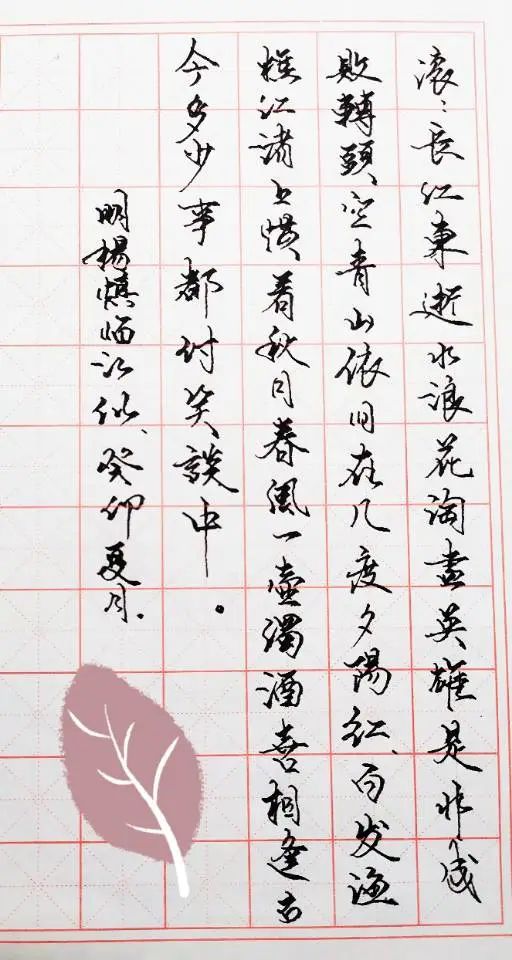 滚〻长江東逝水浪花淘盡英雄是非成
敗轉頭空青山依旧在几度夕陽红百发渔
樵江渚上惯看秋月春風一壶濁酒喜相逢古
今多少事都付笑談中。
明楊慎临江仙、癸卯夏月.